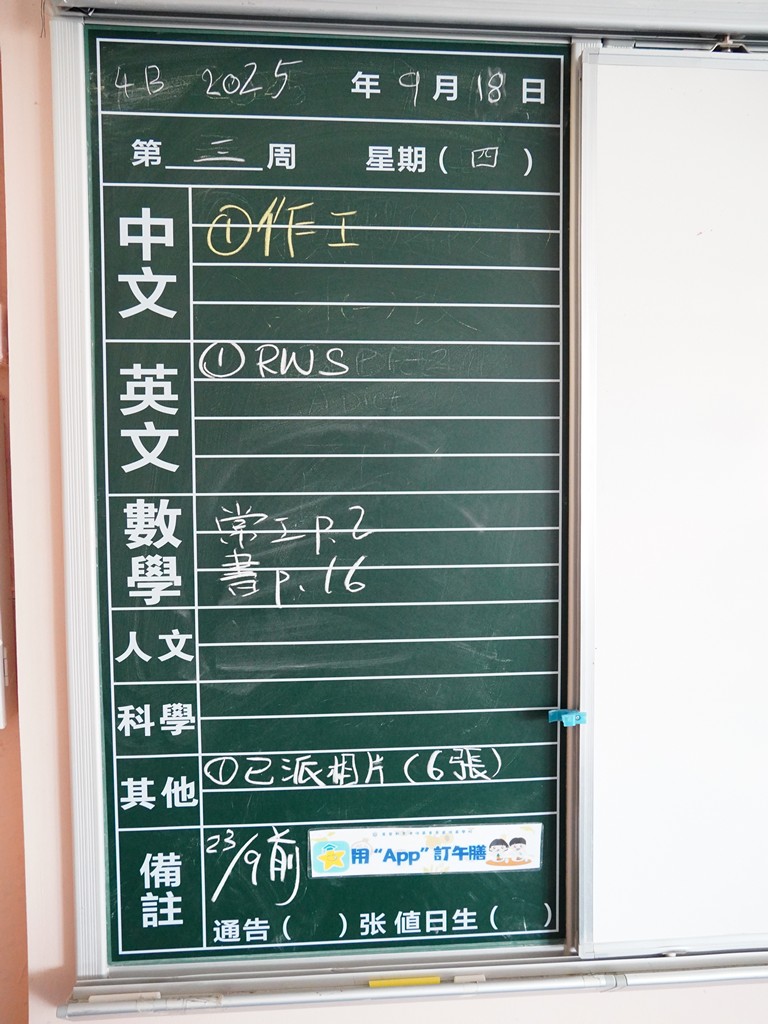 4B 2025 年 9 月 18 日
第 三 周 星期 ( 四 )
中文
①作工
英文
① RWS
數學
常工 p.2
書 p.16
人文
科學
其他
①已派相片 (6張)
備註
23/9前
用 “App” 訂午膳
通告 ( ) 张 值日生 ( )